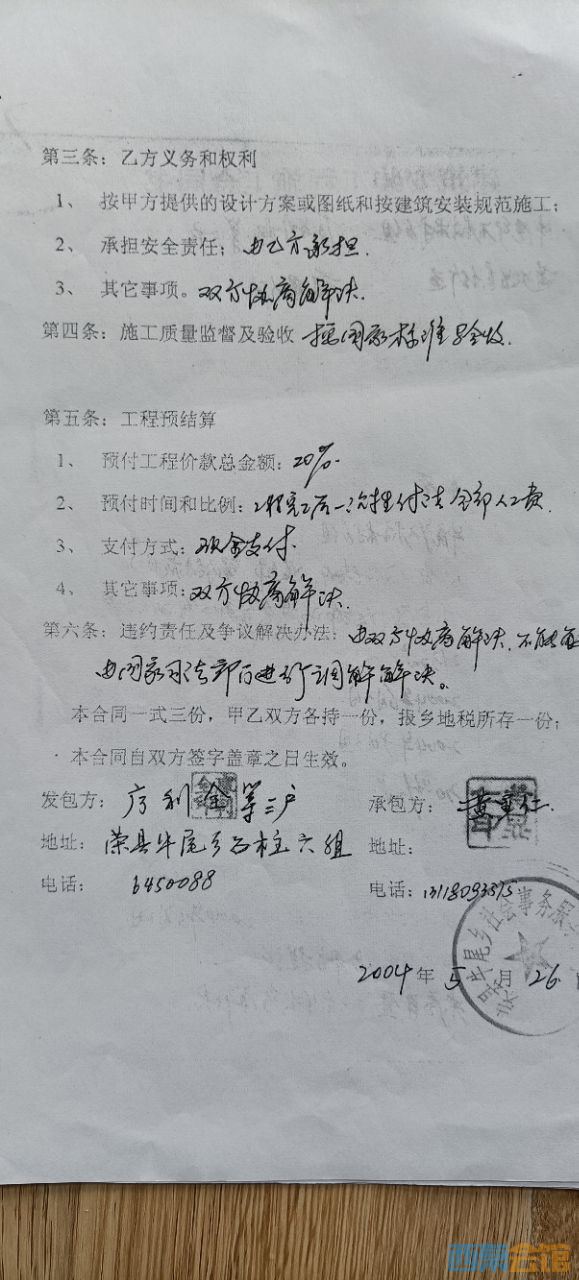 第三条：乙方义务和权利
1、 按甲方提供的设计方案或图纸和按建筑安装规范施工；
2、 承担安全责任；由乙方承担.
3、 其它事项。双方协商解决.
第四条：施工质量监督及验收 按国家标准验收.
第五条：工程预结算
1、 预付工程价款总金额：20%.
2、 预付时间和比例：工程完工后一次性付清全部人工费.
3、 支付方式：现金支付.
4、 其它事项：双方协商解决.
第六条：违约责任及争议解决办法：由双方协商解决.不能
由国家司法部门进行调解解决。
本合同一式三份，甲乙双方各持一份，报乡地税所存一份；
本合同自双方签字盖章之日生效。
发包方： 利金等三户
承包方：
地址：荣县牛尾乡石柱六组
地址：
电话： 6450088
电话：
牛尾乡社会事务服
2004年5月26
西祠会馆